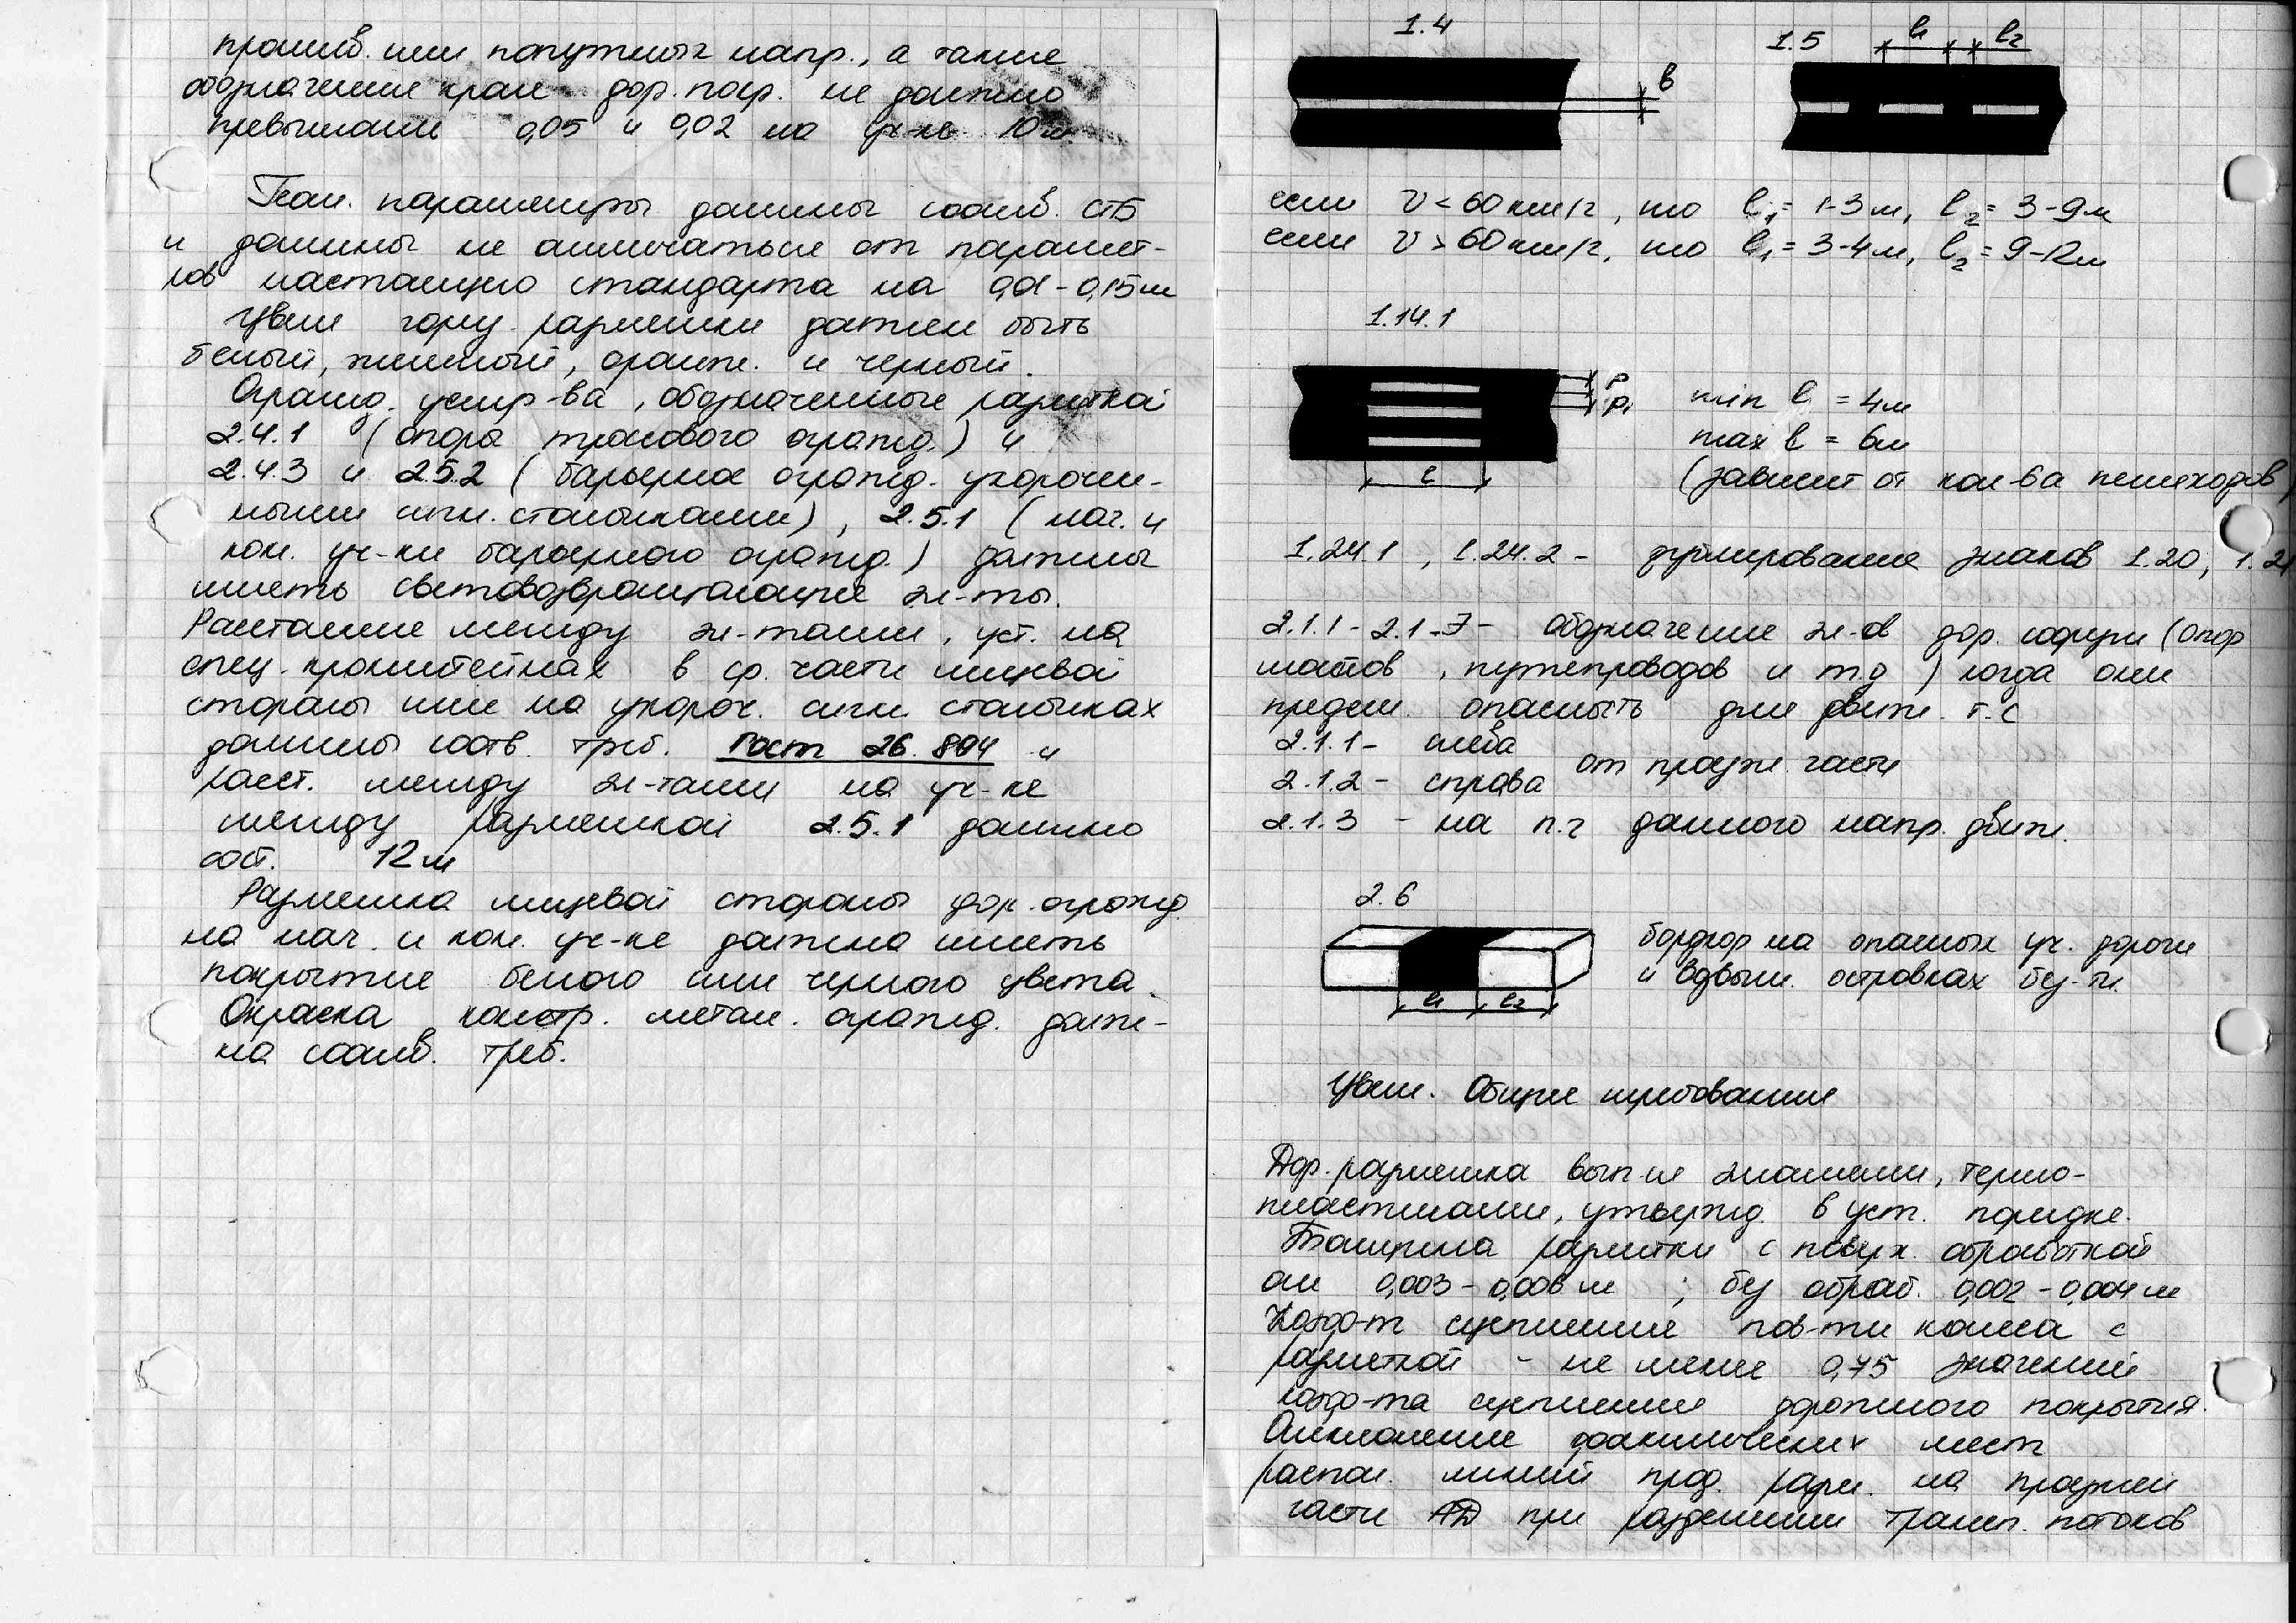 против. или попутных напр., а также
обозначение края дор. покр. не должно
превышать 0,05 и 0,02 на уч-ке 10 м.
Геом. параметры должны соотв. СТБ
и должны не отличаться от парамет-
ров настоящего стандарта на 0,01-0,15 м
Цвет гориз. разметки должен быть
белый, желтый, оранж. и черный.
Огражд. устр-ва, обозначенные разметкой
2.4.1 (опоры тросового огражд.) и
2.4.3 и 2.5.2 (барьерное огражд. укорочен-
ными сигн. столбиками), 2.5.1 (нач. и
кон. уч-ки барьерного огражд.) должны
иметь световозвращающие эл-ты.
Расстояние между эл-тами, уст. на
спец. кронштейнах в ср. части лицевой
стороны или на укороч. сигн. столбиках
должны соотв. треб. Гост 26.804 и
расст. между эл-тами на уч-ке
между разметкой 2.5.1 должно
сост. 12 м
Разметка лицевой стороны дор. огражд.
на нач. и кон. уч-ке должна иметь
покрытие белого или черного цвета.
Окраска констр. метал. огражд. долж-
на соотв. треб.
1.4
в
1.5 l1 l2
если v < 60 км/г, то l1 = 1-3 м, l2 = 3-9 м
если v > 60 км/г, то l1 = 3-4 м, l2 = 9-12 м
1.14.1
P
P1
l
min l = 4 м
max l = 6 м
(зависит от кол-ва пешеходов)
1.24.1, 1.24.2 - дублирование знаков 1.20, 1.21
2.1.1 - 2.1.3 - обозначение эл-ов дор. сооруж (опор
мостов, путепроводов и т.д) когда они
предст. опасность для движ. т.с
2.1.1 - слева
2.1.2 - справа от проезж. части
2.1.3 - на п.ч данного напр. движ.
2.6
l1 l2
бордюр на опасных уч. дороги
и возвыш. островках без-ти.
Цвет. Общие требования
Дор. разметка вып-ся эмалями, термо-
пластиками, утвержд. в уст. порядке.
Толщина разметки с поверх. обработкой
от 0,003 - 0,006 м ; без обраб. 0,002 - 0,004 м
Коэф-т сцепления пов-ти колеса с
разметкой - не менее 0,75 значений
коэф-та сцепления дорожного покрытия.
Отклонение фактических мест
распол. линий прод. разм. на проезжей
части АД при разделении трансп. потоков